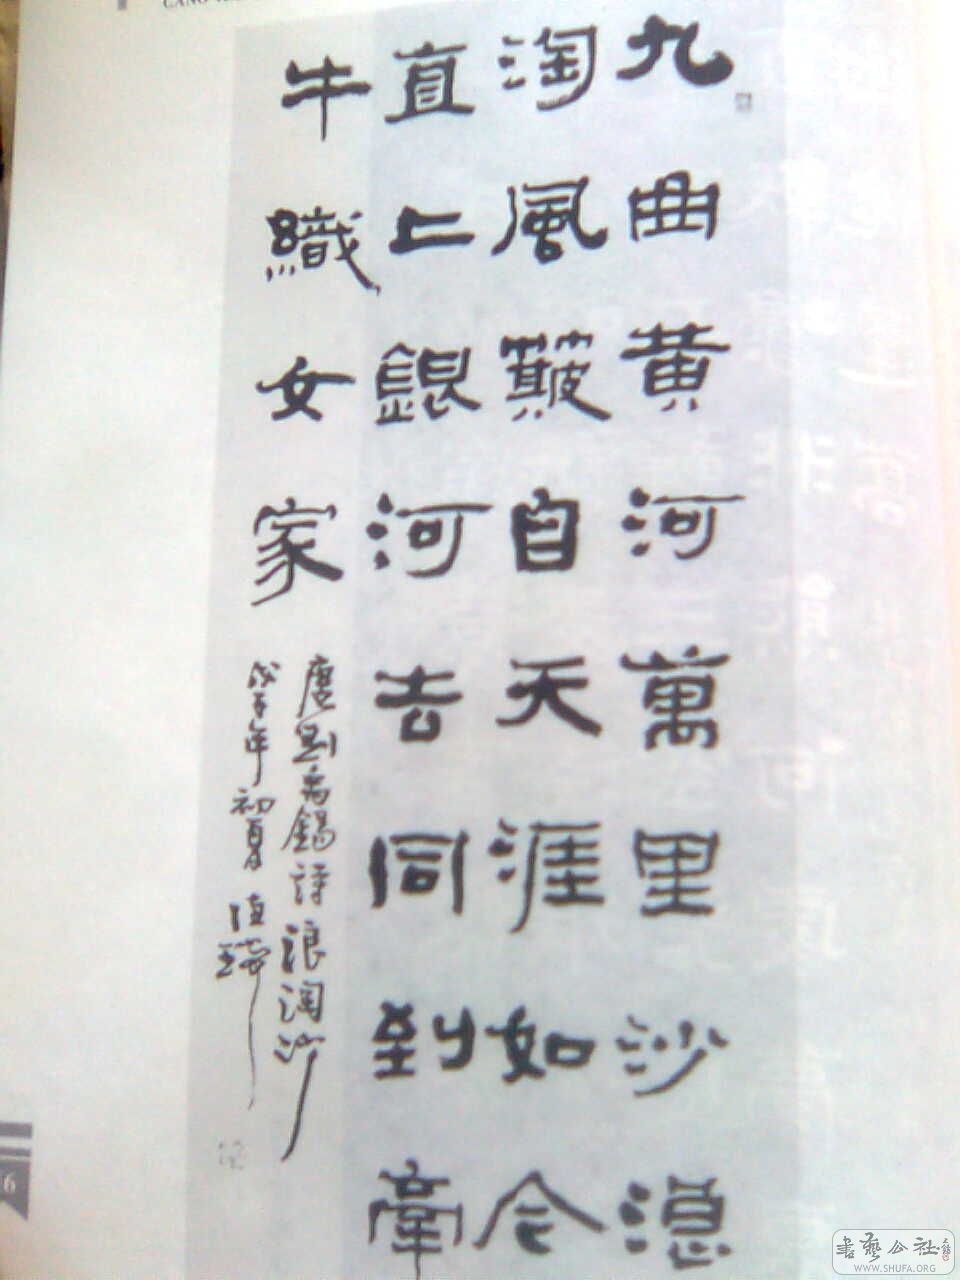 九曲黄河萬里沙浪
淘風簸自天涯如今
直上銀河去同到牽
牛織女家
唐劉禹錫詩浪淘沙
戊子年初夏
6
書藝公社
WWW.SHUFA.ORG